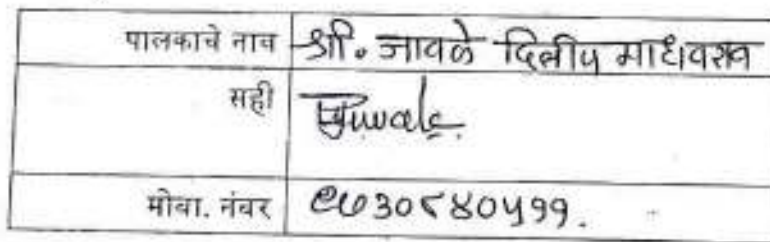 पालकाचे नाव श्री. जावळे दिलीप माधवराव
सही Juwale
मोबा. नंबर ९७३०८४०५११.